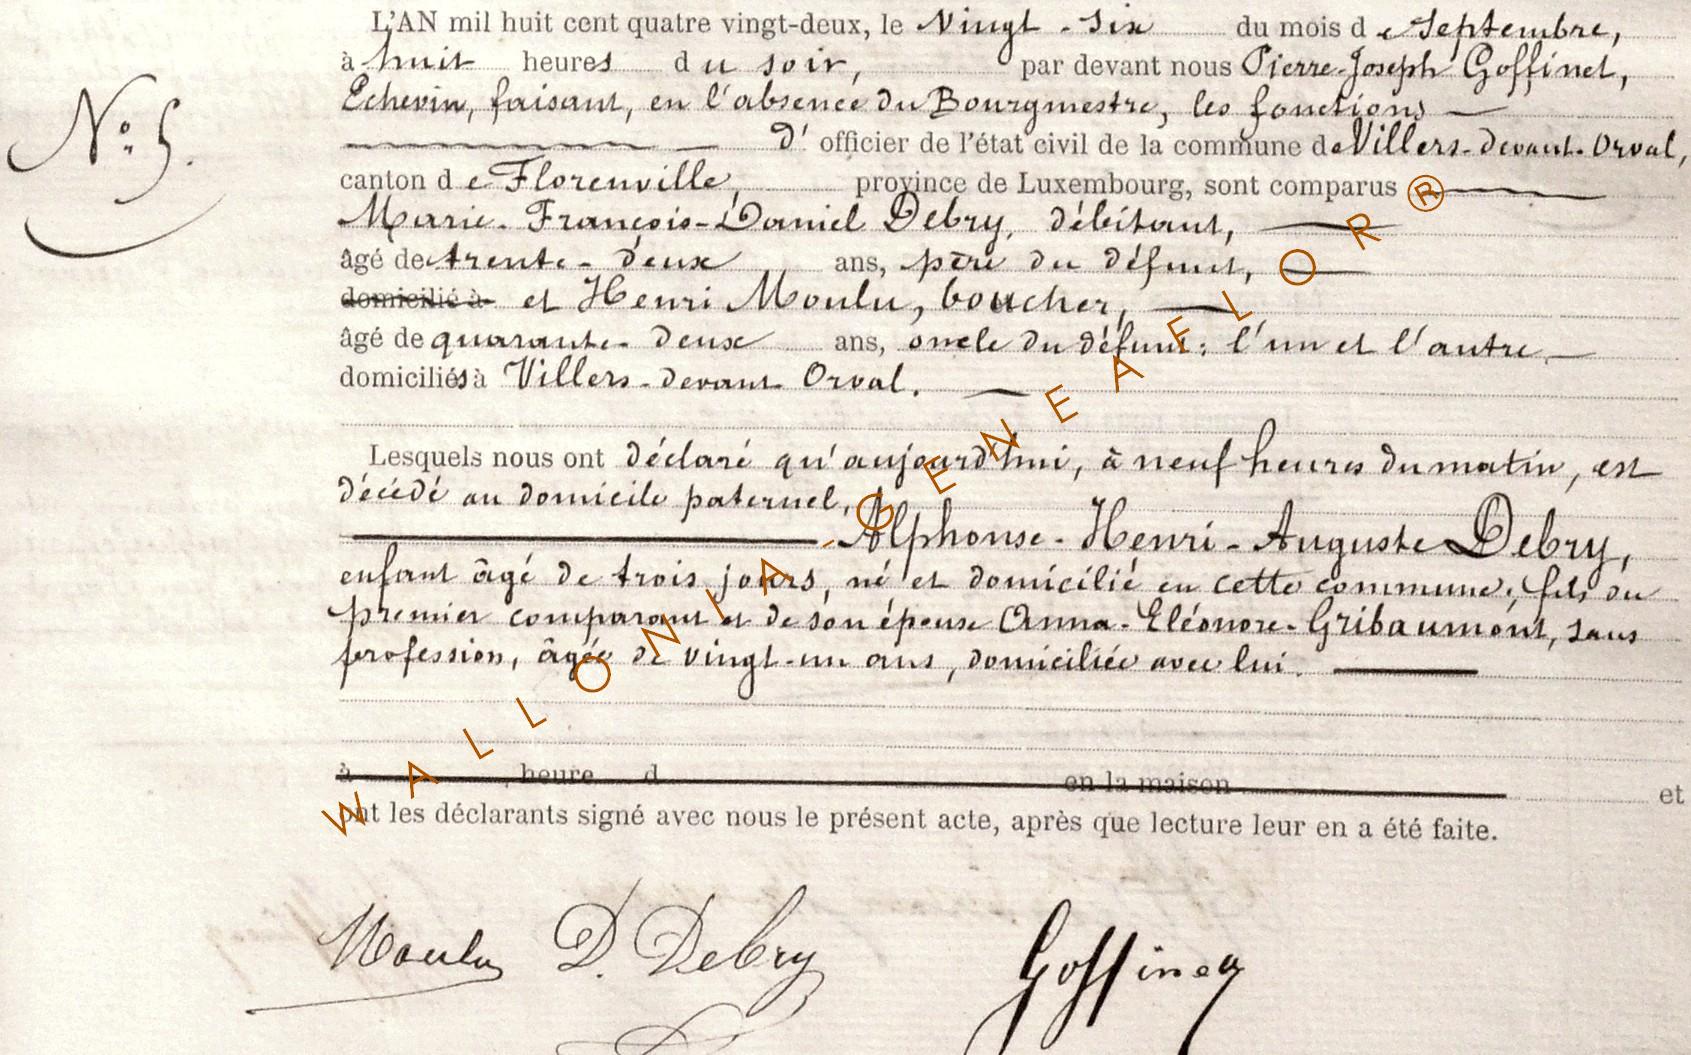 L'AN mil huit cent quatre vingt-deux, le Vingt-six du mois de Septembre,
à huit heures du soir, par devant nous Pierre-Joseph Goffinet,
Echevin, faisant, en l'absence du Bourgmestre, les fonctions
N° 5.
d'officier de l'état civil de la commune de Villers-devant-Orval,
canton de Florenville, province de Luxembourg, sont comparus
Marie-François-Daniel Debry, débitant,
âgé de trente-deux ans, père du défunt,
domicilié à et Henri Moulu, boucher,
âgé de quarante-deux ans, oncle du défunt; l'un et l'autre
domiciliés à Villers-devant Orval.
Lesquels nous ont déclaré qu'aujourd'hui, à neuf heures du matin, est
décédé au domicile paternel,
Alphonse-Henri-Auguste Debry,
enfant âgé de trois jours, né et domicilié en cette commune, fils du
premier comparant et de son épouse Anna-Eléonore-Gribaumont, sans
profession, âgée de vingt-un ans, domiciliée avec lui.
à heure d en la maison et
ont les déclarants signé avec nous le présent acte, après que lecture leur en a été faite.
Moulu D. Debry Goffinet
WALLONIA-GENEAFLOR®